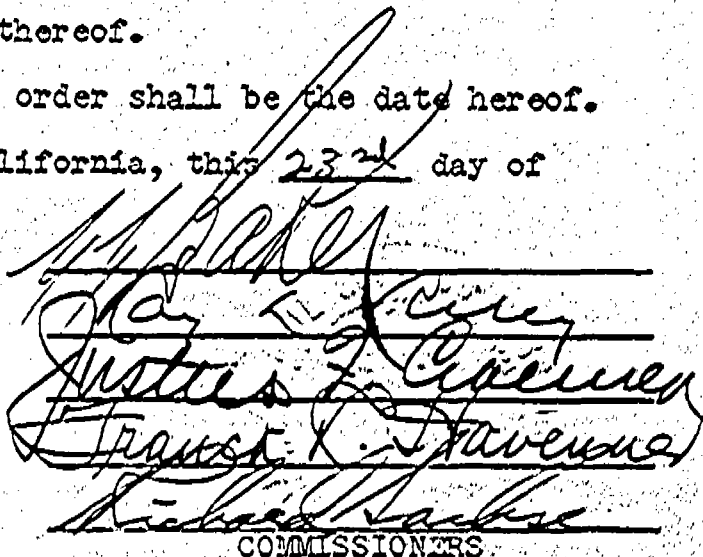 thereof.
order shall be the date hereof.
lifornia, this 23rd day of
Baker
Ray
Justus F. Craemer
Franck R. Havenner
Richard Sachse
COMMISSIONERS